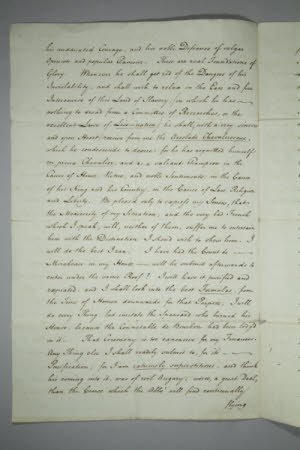 his undaunted Courage, and his noble Defiance of vulgar
Opinion and popular Clamour. These are real Foundations of
Glory. Whenever he shall get rid of the Dangers of his
Inviolability, and shall wish to relax in the Ease and free
Intercourse of this Land of Slavery, (in which he has
nothing to dread from a Committee of Researches, or the
excellent Laws of
he shall, with a very sincere
and open Heart, receive from me the
which he condescends to desire: for he has acquitted himself
en preux Chevalier, and as a valiant Champion in the
Cause of Honor, Virtue, and noble Sentiments; in the Cause
of his King and his Country; in the Cause of Law, Religion
and Liberty. Be pleased only to express my Fears, that
the Mediocrity of my Situation, and the very bad French
which I speak, will, neither of them, suffer me to entertain
him with the Distinction I should wish to show him. I
will do the best I can. I have had the Count de
Mirabeau in my House — will he submit afterwards to
enter under the same Roof? I will have it purified and
expiated; and I shall look into the best Formulas, from
the Time of Homer downwards for that Purpose. I will
do every Thing, but imitate the Spaniard who burned his
House, because the Connestable de Bourbon had been lodged
in it. That Ceremony is too expensive for my Finances.
Any Thing else I shall readily submit to, for its
Purification; for I am extremely superstitious, and think
his coming into it, was of evil Augury; worse, a great Deal,
than the Crows which the Abbé will find continually
flying